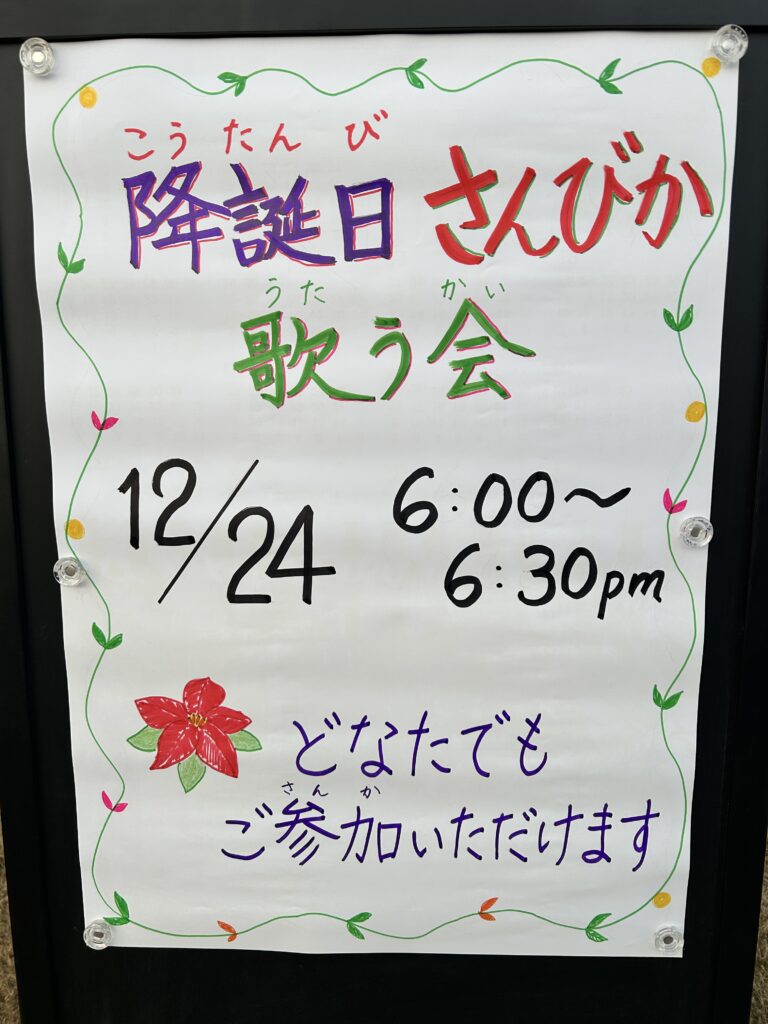 こうたんび
降誕日 さんびか
うた かい
歌う会
12/24 6:00〜
6:30pm
どなたでも
さんか
ご参加いただけます